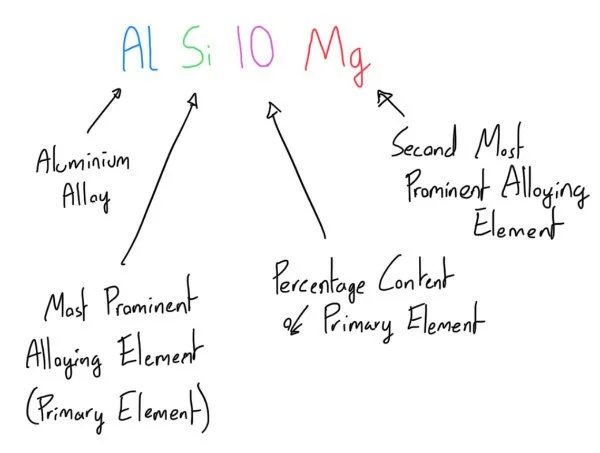 Al Si 10 Mg
Aluminium
Alloy
Second Most
Prominent Alloying
Element
Most Prominent
Alloying Element
(Primary Element)
Percentage Content
of Primary Element